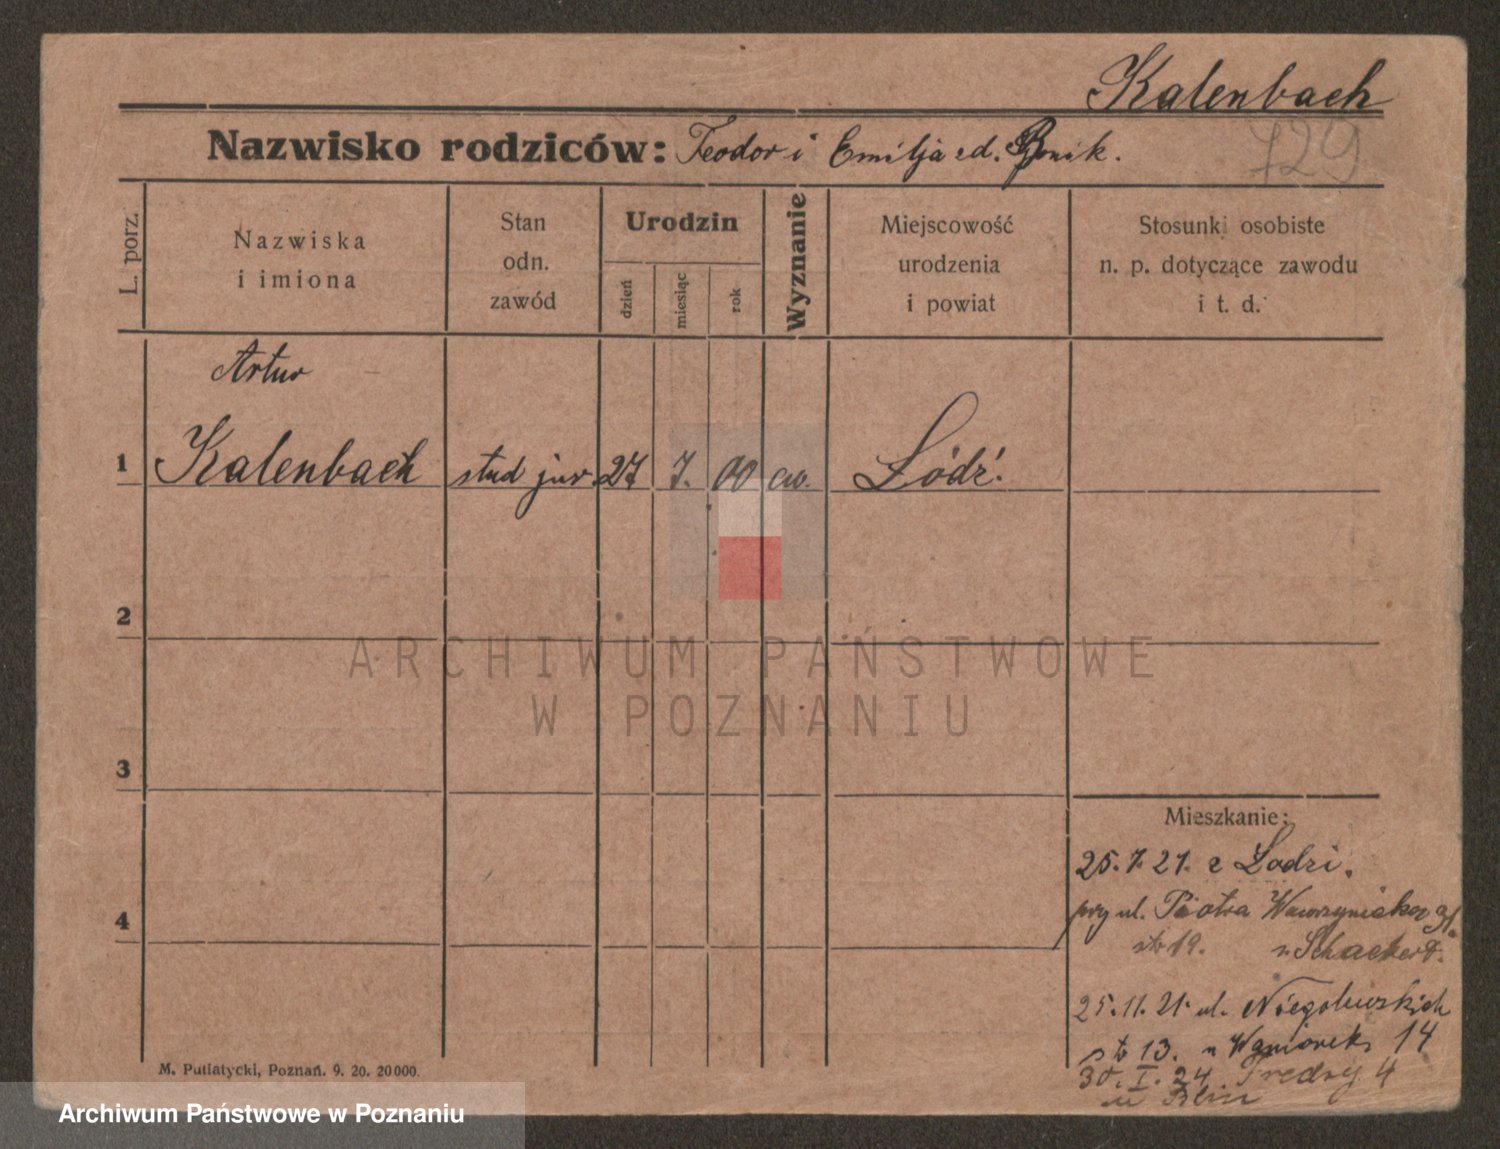 Kalenbach
Nazwisko rodziców: Teodor i Emilja zd.
729
L. porz.
Nazwiska
i imiona
Stan
odn.
zawód
Urodzin
dzień
miesiąc
rok
Wyznanie
Miejscowość
urodzenia
i powiat
Stosunki osobiste
n. p. dotyczące zawodu
i t. d.
Artur
1 Kalenbach stud jur. 27 7. 00 ew. Łódź.
2
ARCHIWUM PAŃSTWOWE
W POZNANIU
3
Mieszkanie:
25.7.21. z Lodzi.
4
przy ul. Piotra
19.
25.11.21. ul. Niegolewskich
13. 14
30. I. 24 Fredry 4
M. Putiatycki, Poznań. 9. 20. 20000.
Archiwum Państwowe w Poznaniu